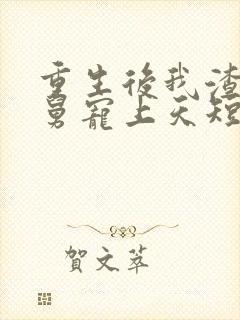 重生後我渣
舅寵上天短
賀文萃